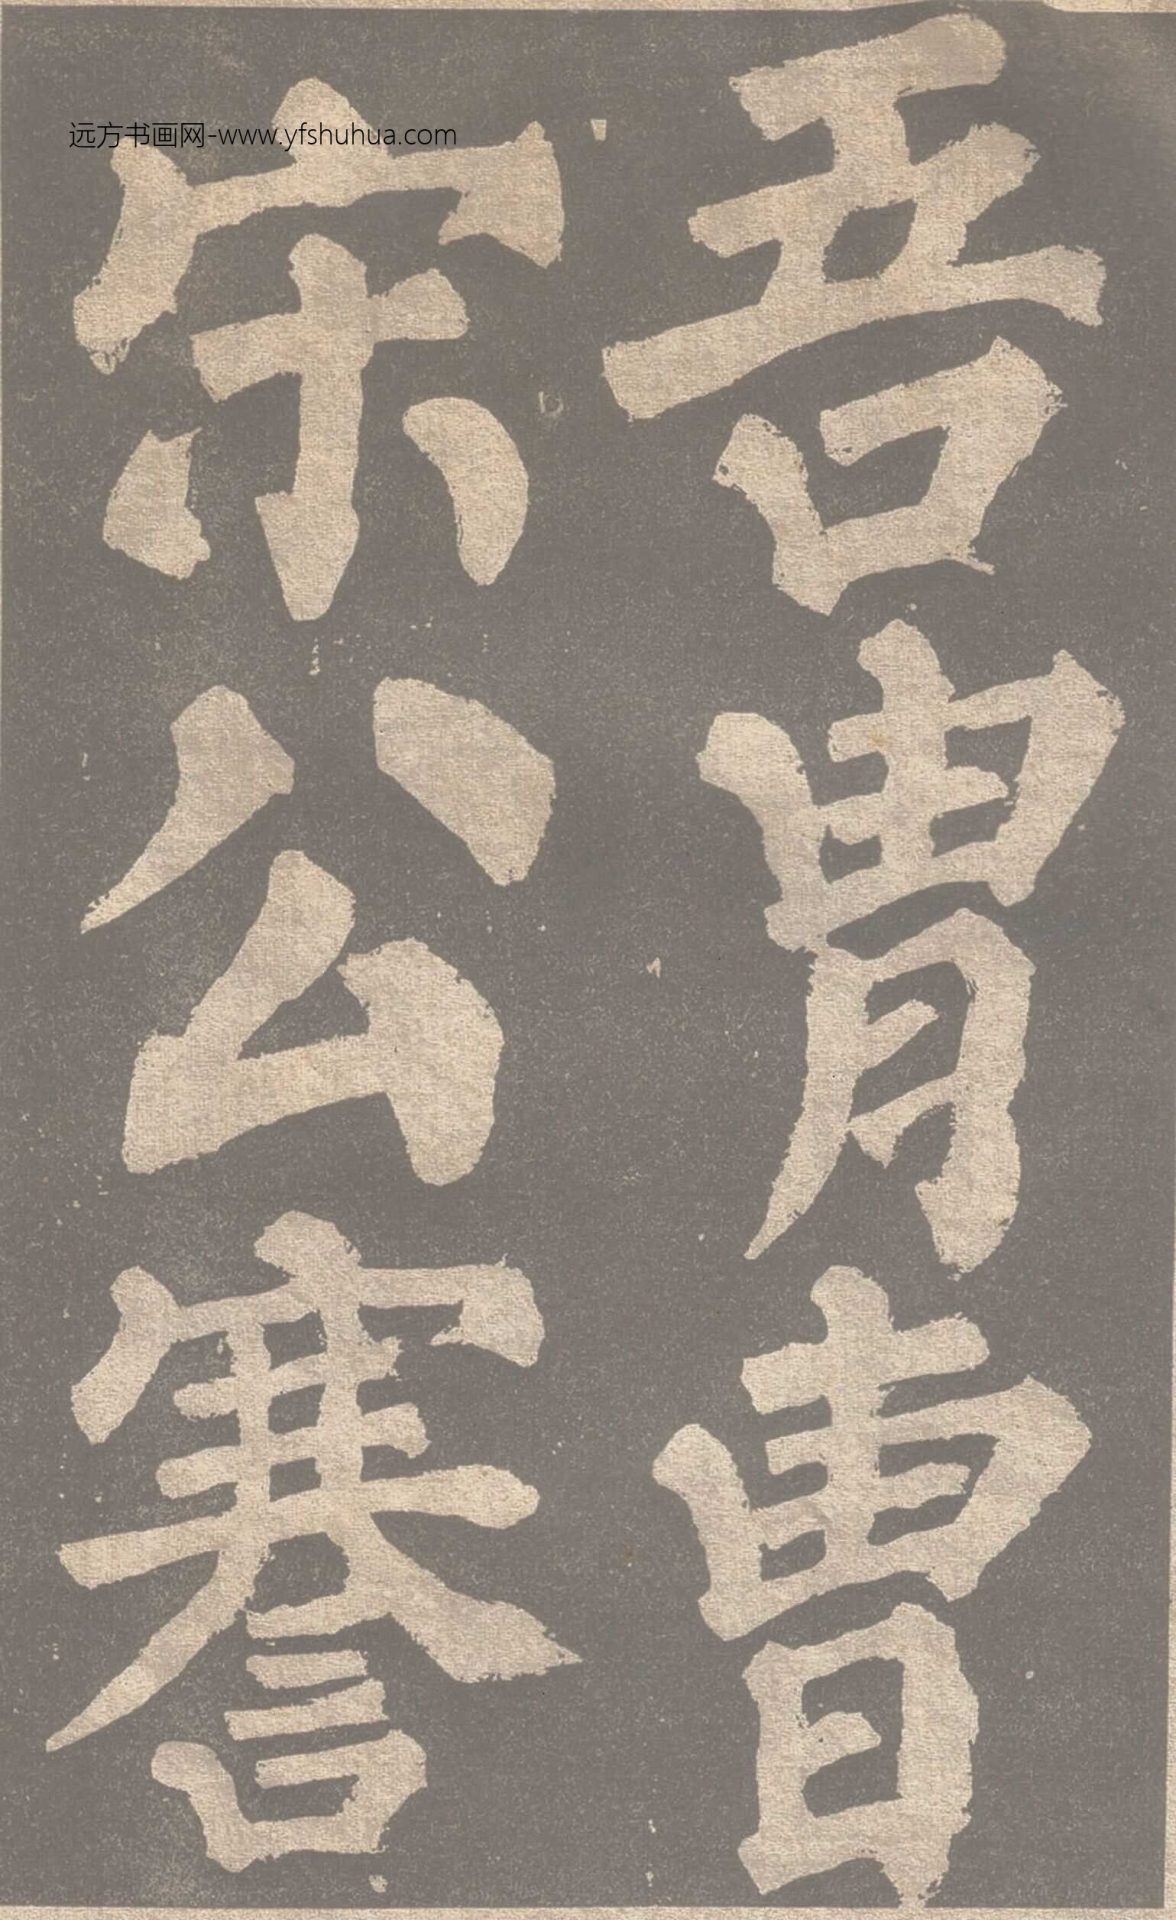 吾胄曹
宋公謇
远方书画网-www.yfshuhua.com